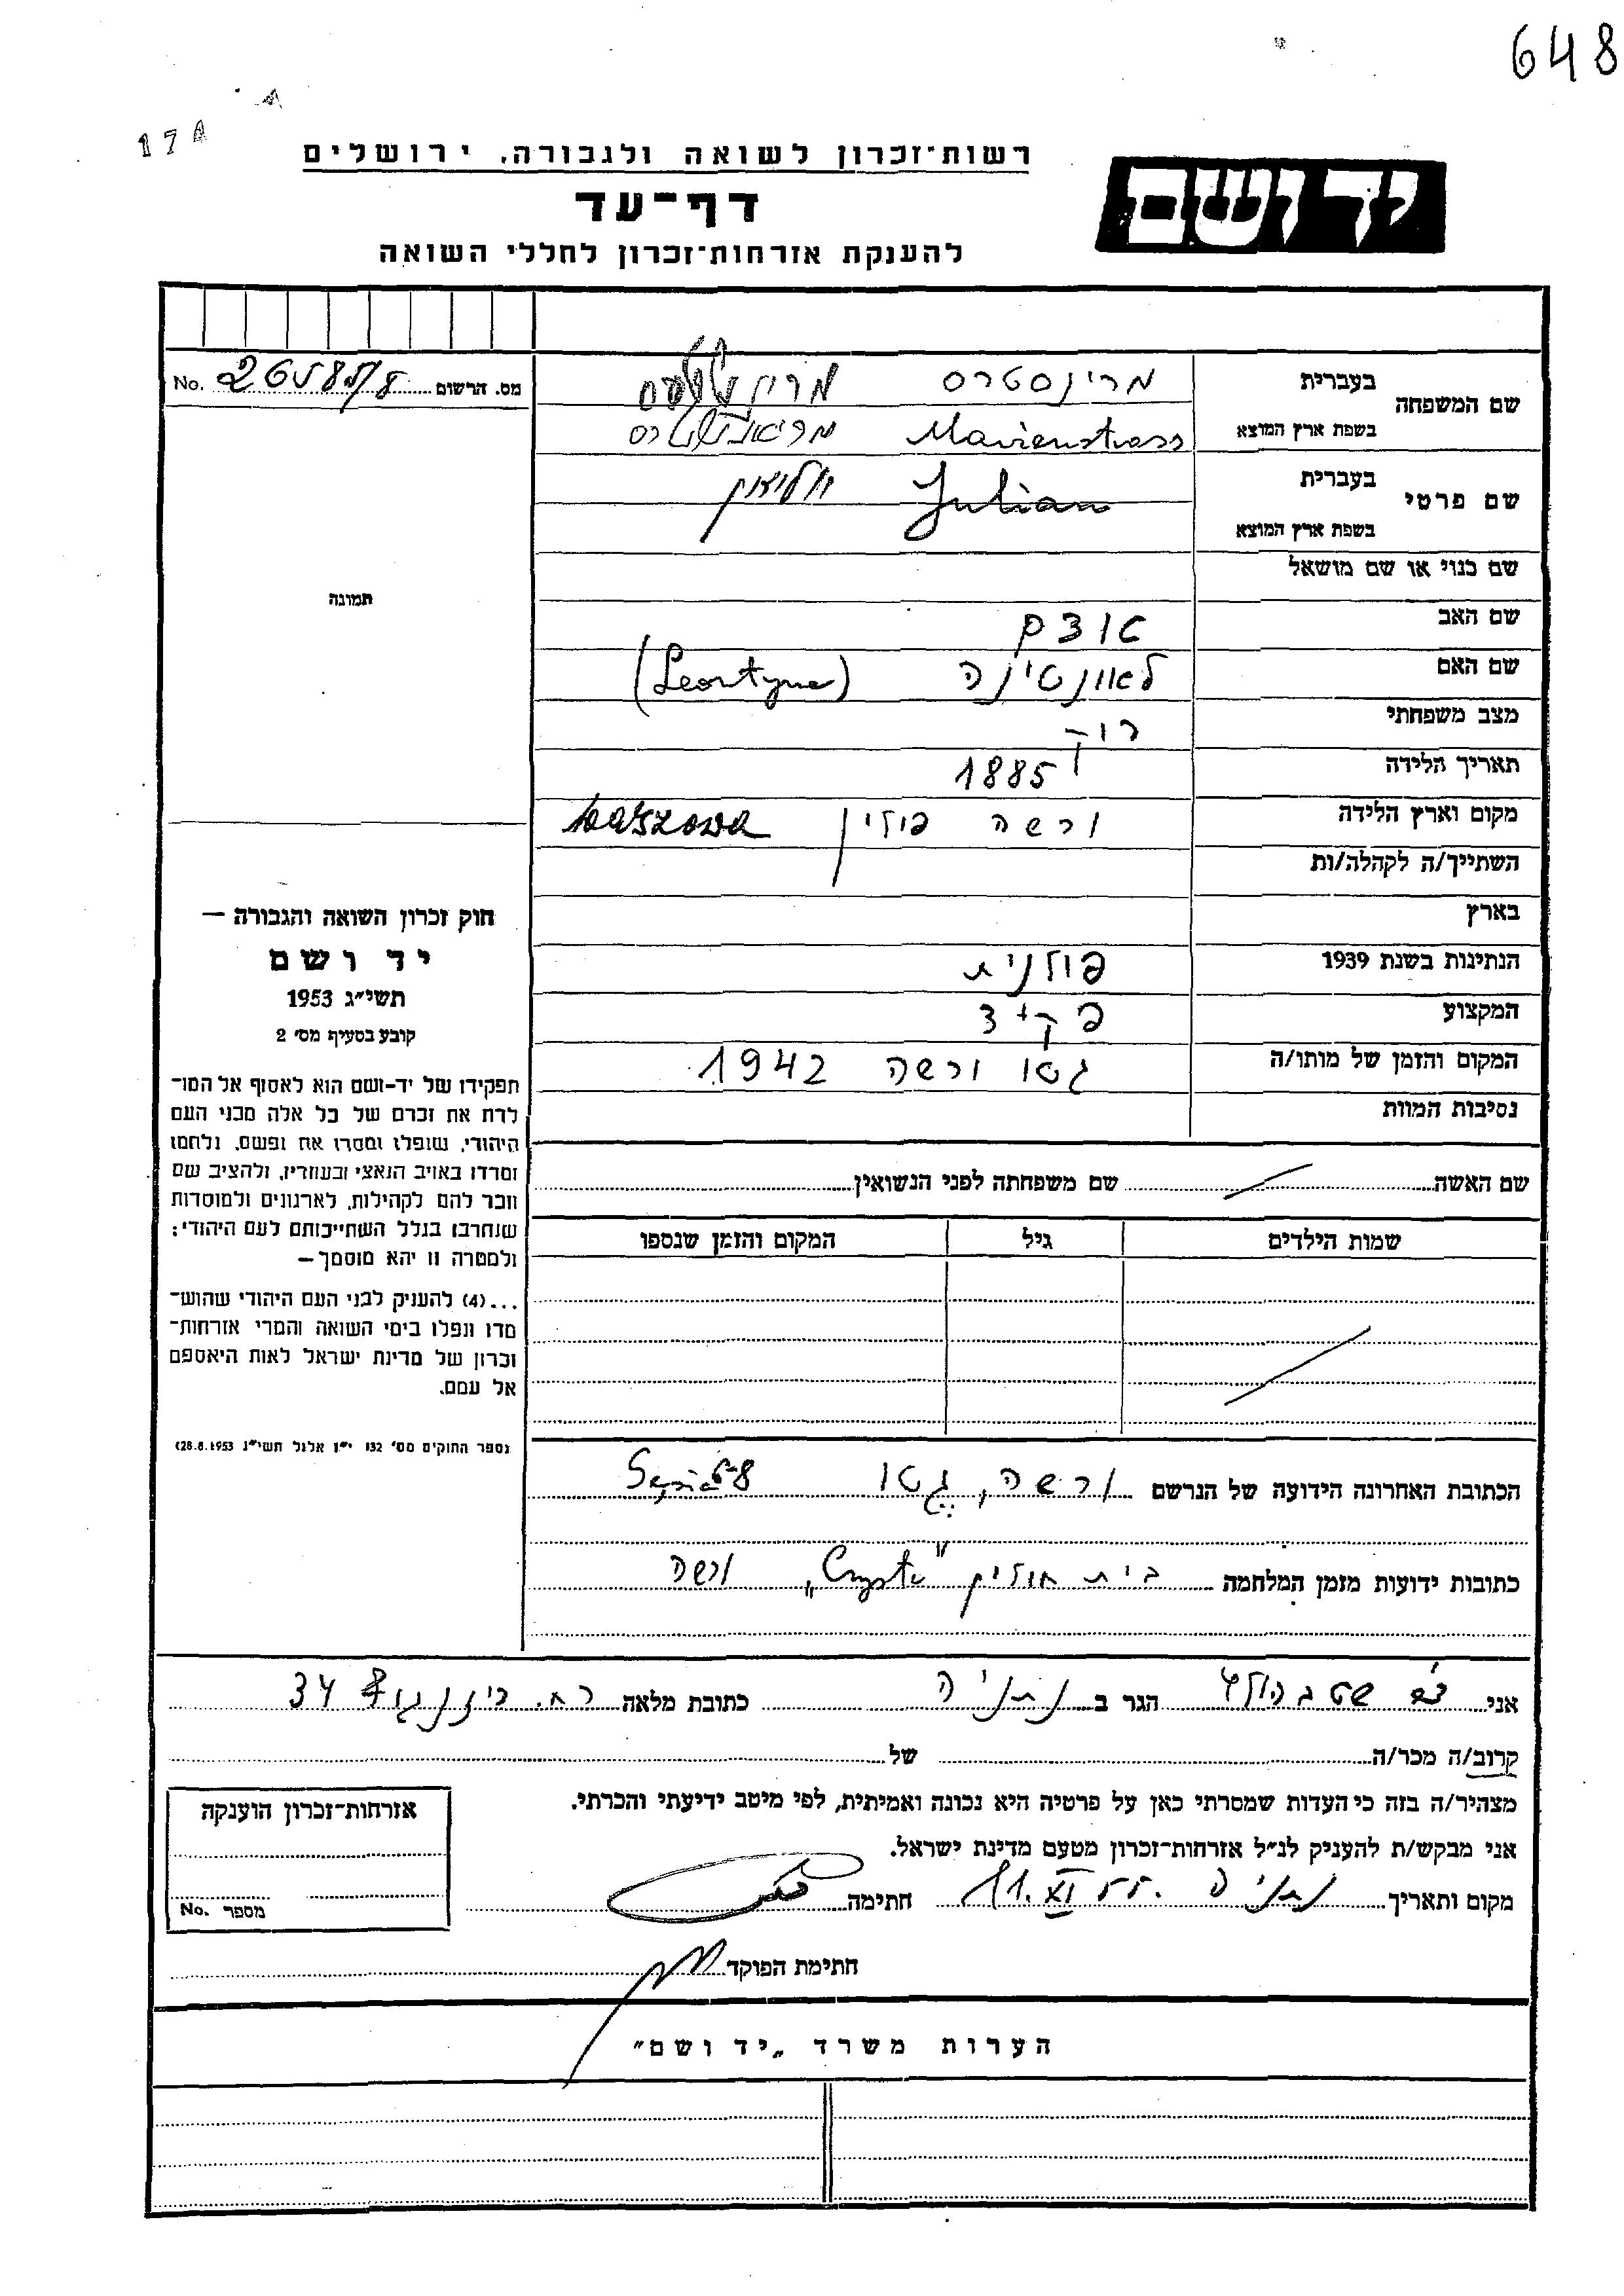 648
17A
רשות־זכרון לשואה ולגבורה, ירושלים
יד ושם
דף־עד
להענקת אזרחות־זכרון לחללי השואה
מס. הרשום No.
שם המשפחה
בעברית מרינסטרס
בשפת ארץ המוצא Marienstrass
שם פרטי
בעברית
Julian
בשפת ארץ המוצא
שם כנוי או שם מושאל
תמונה
שם האב
שם האם לאונטינה (Leontyna)
מצב משפחתי רוק
תאריך הלידה 1885
מקום וארץ הלידה ורשה פולין Warszawa
השתייך/ה לקהלה/ות
בארץ
הנתינות בשנת 1939 פולנית
המקצוע פקיד
המקום והזמן של מותו/ה גטו ורשה 1942
נסיבות המוות
חוק זכרון השואה והגבורה —
יד ושם
תשי״ג 1953
קובע בסעיף מס׳ 2
תפקידו של יד-ושם הוא לאסוף אל המו־
לדת את זכרם של כל אלה מבני העם
היהודי, שנפלו ומסרו את נפשם, נלחמו
ומרדו באויב הנאצי ובעוזריו, ולהציב שם
וזכר להם לקהילות, לארגונים ולמוסדות
שנחרבו בגלל השתייכותם לעם היהודי;
ולמטרה זו יהא מוסמך —
...(4) להעניק לבני העם היהודי שהוש־
מדו ונפלו בימי השואה והמרי אזרחות־
זכרון של מדינת ישראל לאות היאספם
אל עמם.
(ספר החוקים מס׳ 132 י״ז אלול תשי״ג 28.8.1953)
שם האשה שם משפחתה לפני הנשואין
שמות הילדים גיל המקום והזמן שנספו
הכתובת האחרונה הידועה של הנרשם ורשה, גטו
כתובות ידועות מזמן המלחמה בית חולים "Czyste" ורשה
אני הגר ב נתניה כתובת מלאה 34
קרוב/ה מכר/ה של
מצהיר/ה בזה כי העדות שמסרתי כאן על פרטיה היא נכונה ואמיתית, לפי מיטב ידיעתי והכרתי.
אני מבקש/ת להעניק לנ״ל אזרחות־זכרון מטעם מדינת ישראל.
מקום ותאריך נתניה 11.XI.55 חתימה
אזרחות־זכרון הוענקה
מספר No.
חתימת הפוקד
הערות משרד „יד ושם"